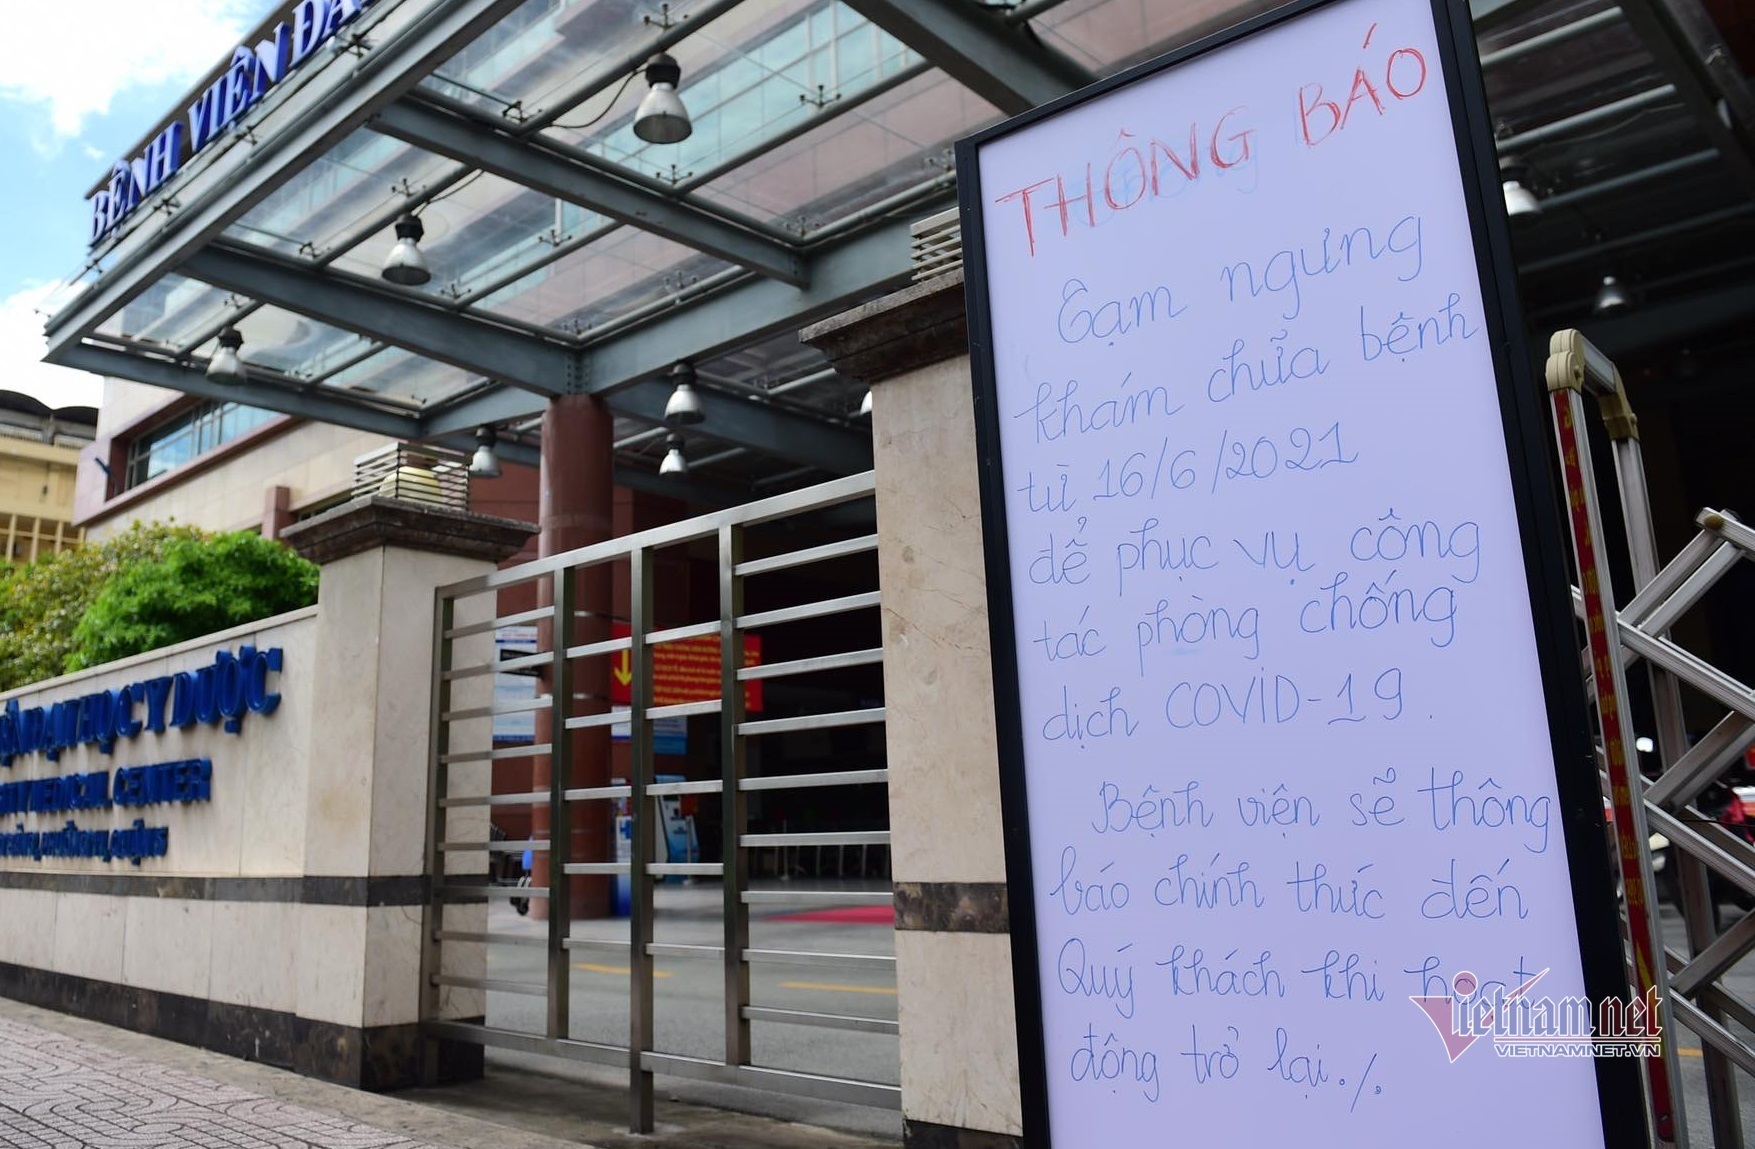 BỆNH VIỆN ĐẠ
THÔNG BÁO
Tạm ngưng
khám chữa bệnh
từ 16/6/2021
để phục vụ công
tác phòng chống
dịch COVID-19.
Bệnh viện sẽ thông
báo chính thức đến
Quý khách khi hoạt
động trở lại./.
ĐẠI HỌC Y DƯỢC
MEDICAL CENTER
vietnamnet
VIETNAMNET.VN